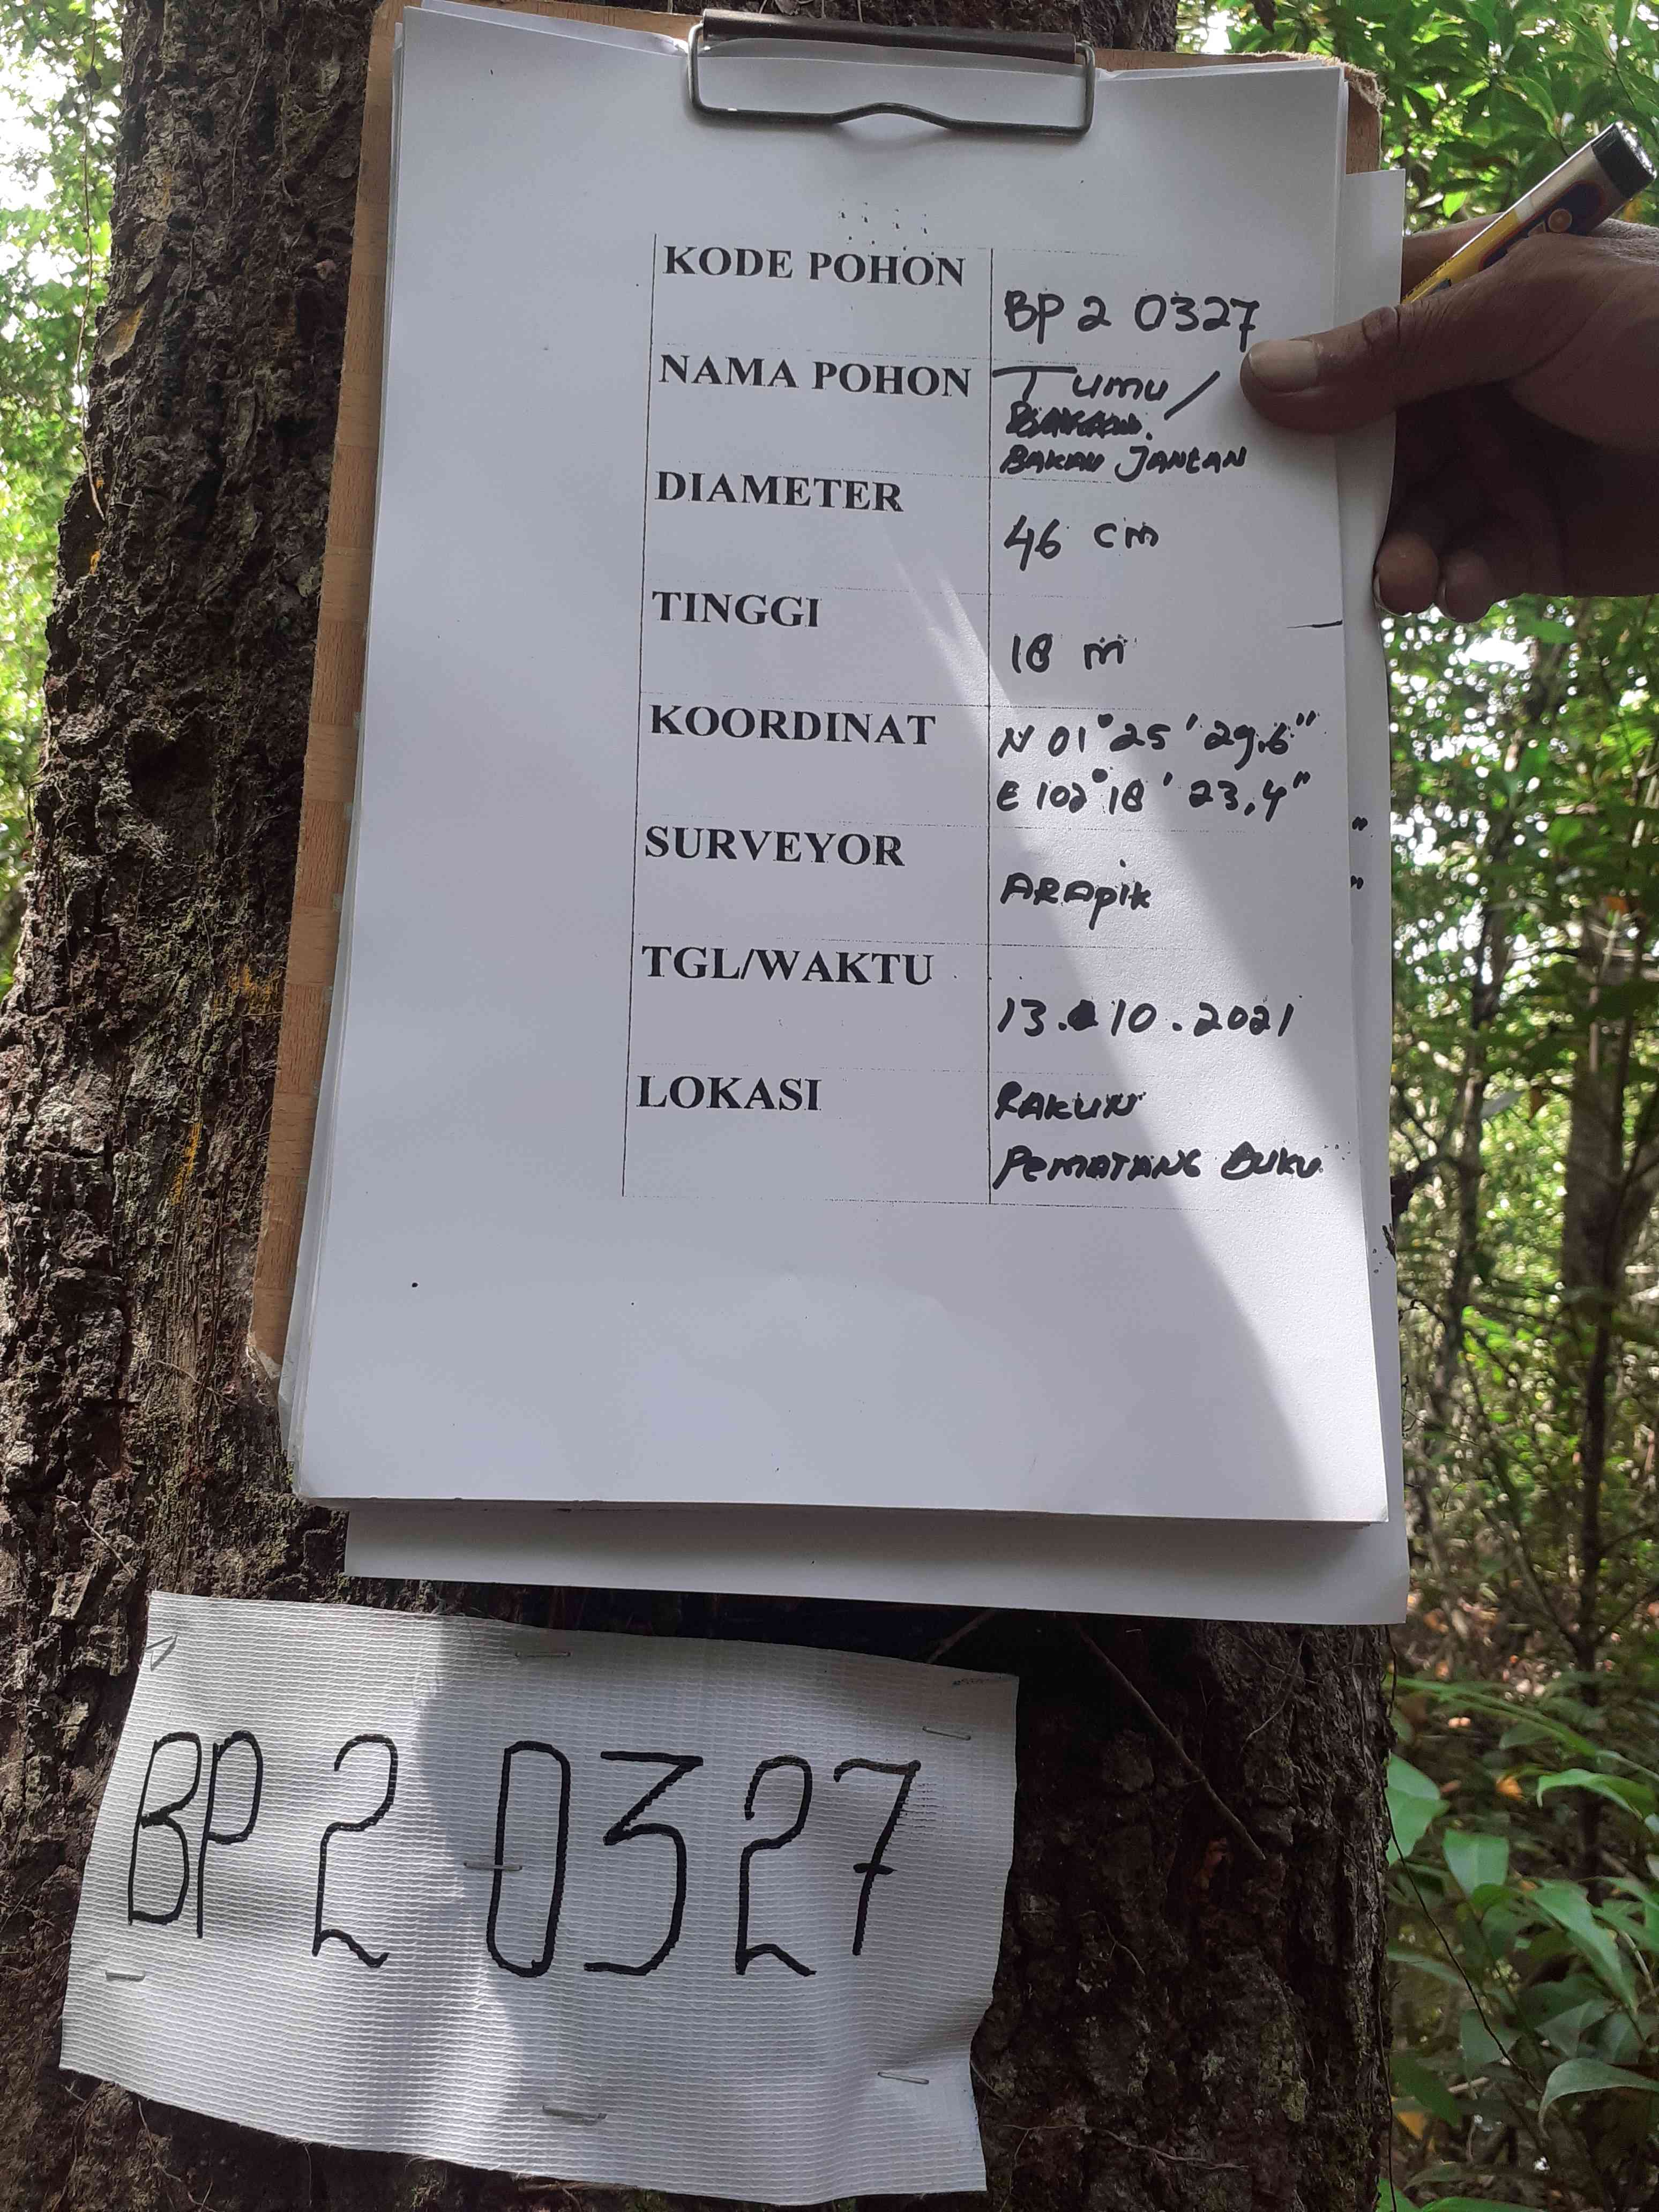 KODE POHON
BP 2 0327
NAMA POHON
Tumu /
BAKAU JANTAN
DIAMETER
46 cm
TINGGI
18 m
KOORDINAT
N 01° 25' 29.6"
E 102° 18' 23,4"
SURVEYOR
ARApik
TGL/WAKTU
13. 10. 2021
LOKASI
RAKUN
PEMATANG BUKU
BP 2 0327